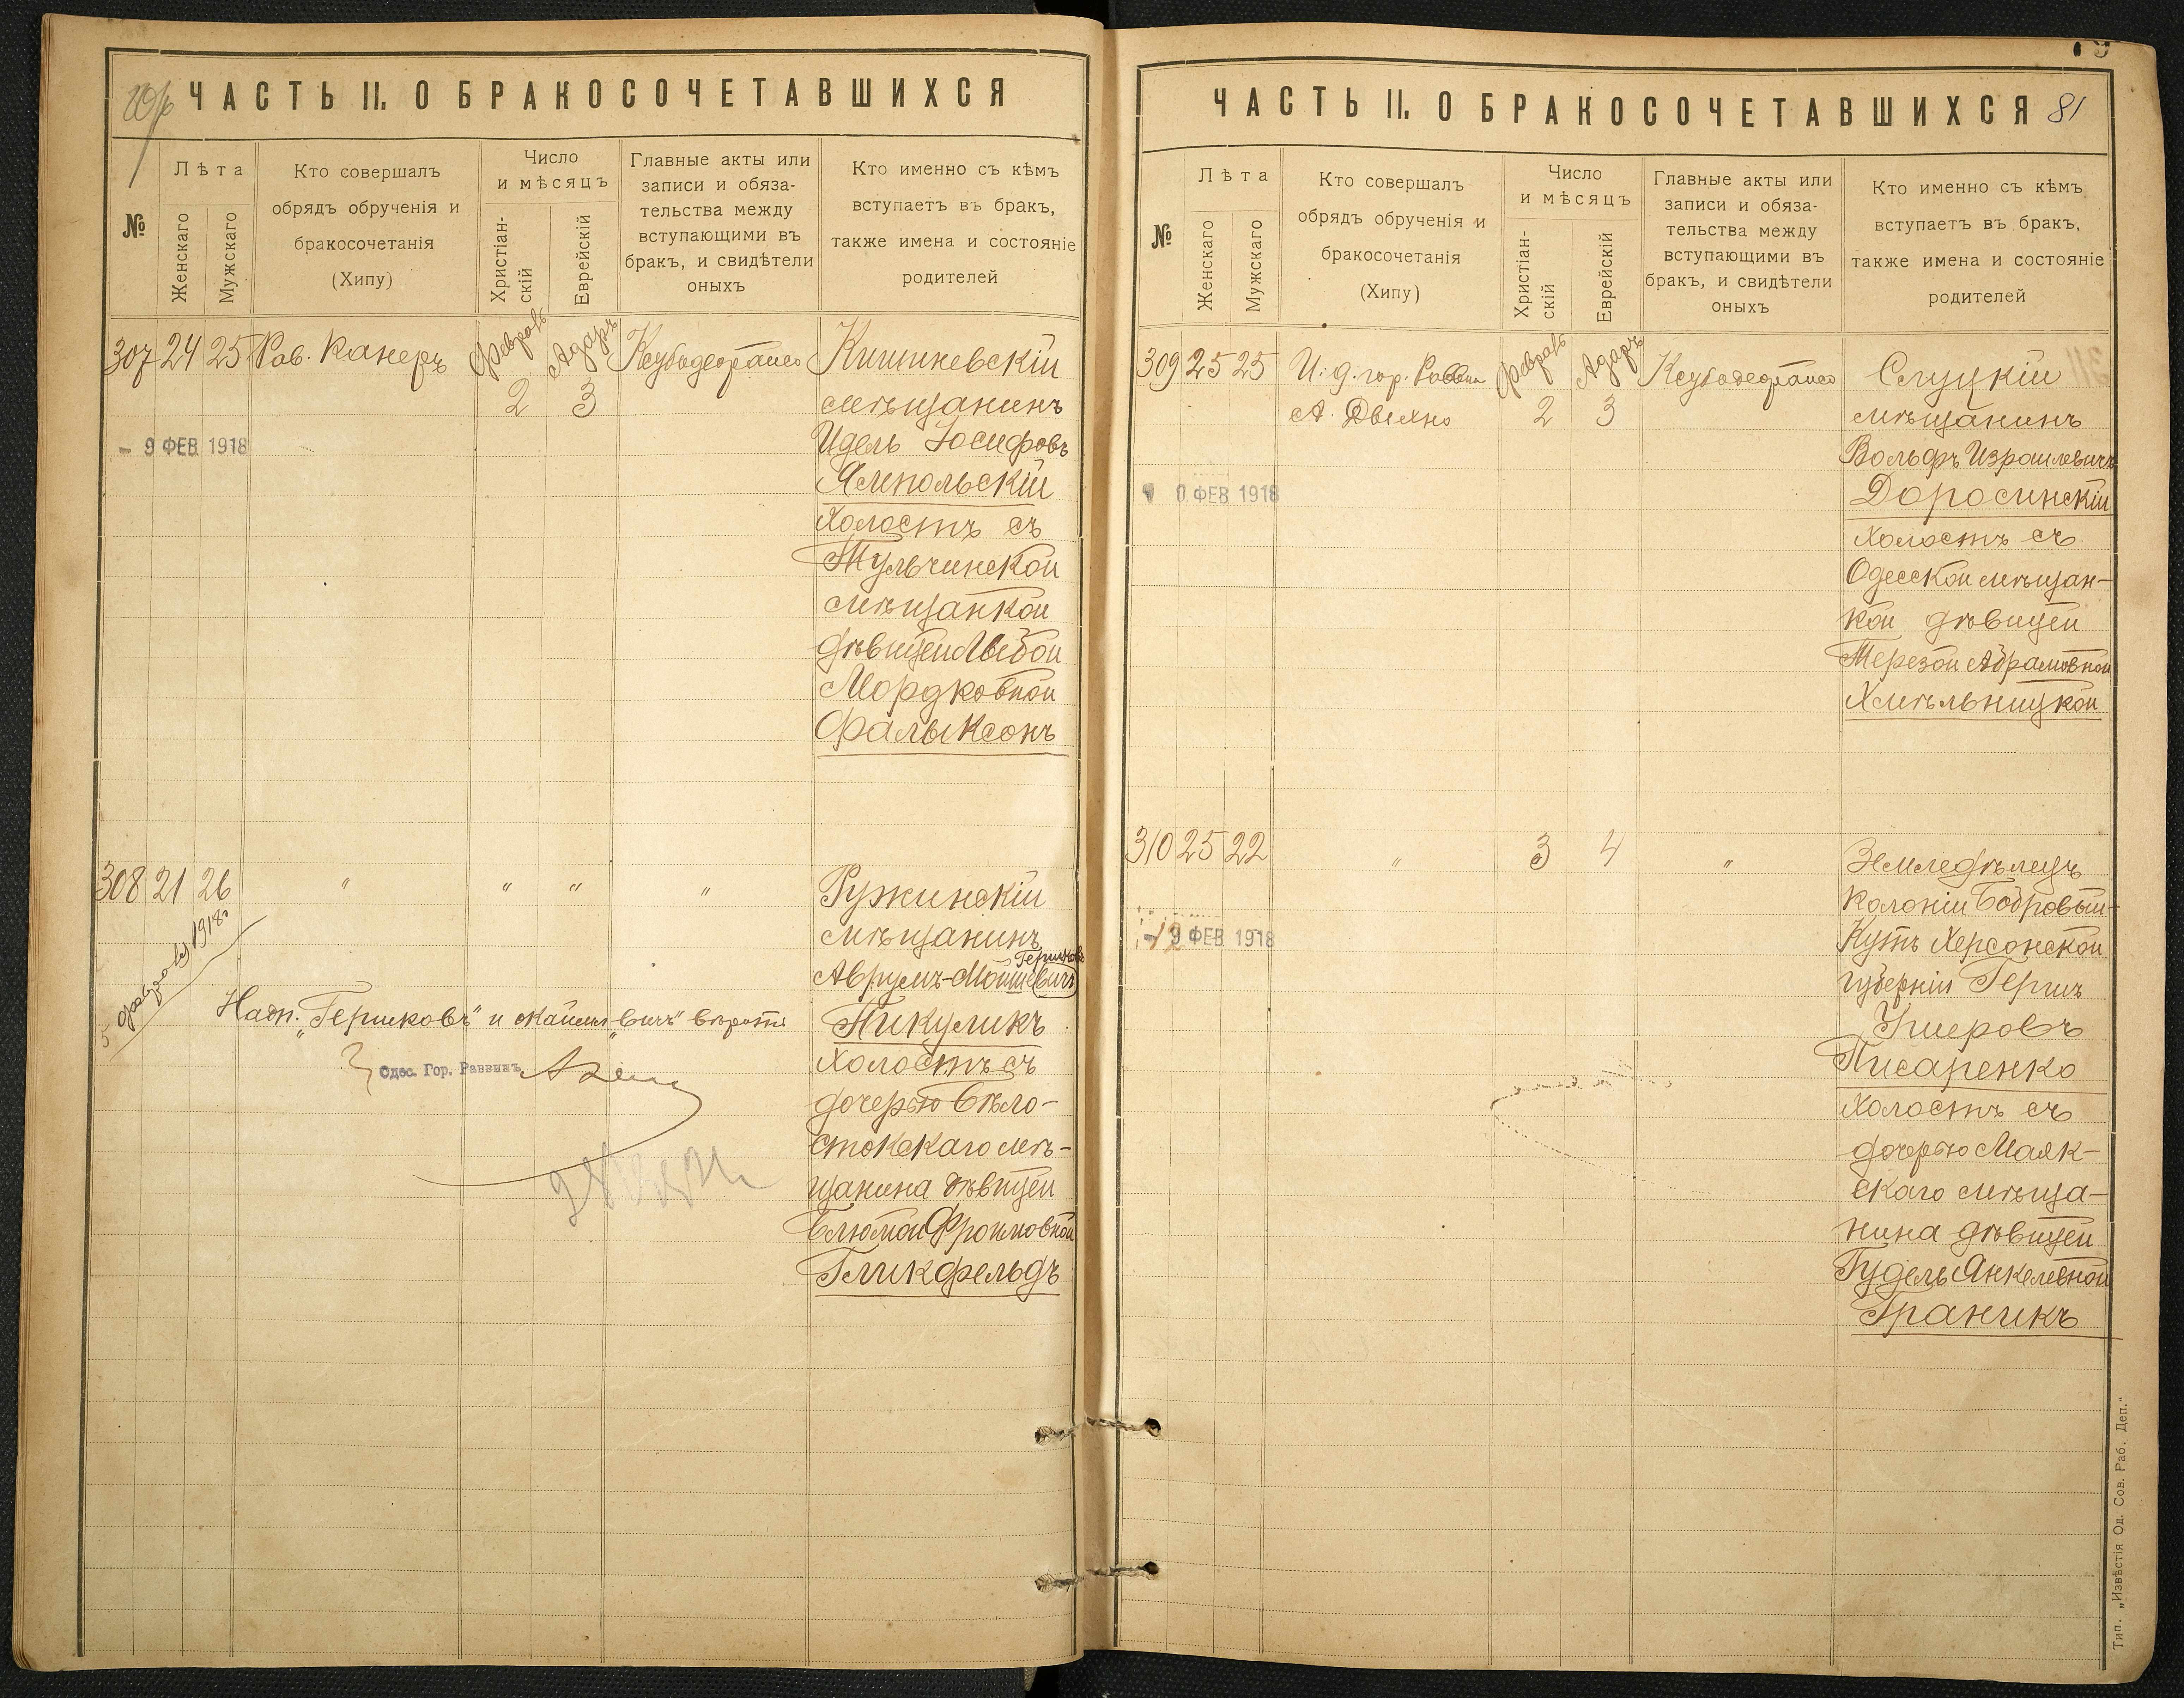 ЧАСТЬ II. О БРАКОСОЧЕТАВШИХСЯ
№
Лѣта
Женскаго
Мужскаго
Кто совершалъ
обрядъ обрученія и
бракосочетанія
(Хипу)
Число
и мѣсяцъ
Христіан-
скій
Еврейскій
Главные акты или
записи и обяза-
тельства между
вступающими въ
бракъ, и свидѣтели
оныхъ
Кто именно съ кѣмъ
вступаетъ въ бракъ,
также имена и состояніе
родителей
307 24 25 Рав. Канеръ
Февраль
2
Адаръ
3
Кишиневскій
мѣщанинъ
Идель Іосифовъ
Ямпольскій
холостъ съ
Тульчинской
мѣщанкой
дѣвицей
Мордковной
Фальксонъ
9 ФЕВ 1918
308 21 26 " " " "
Ружинскій
мѣщанинъ
Гершковъ
Аврумъ-Мошкевичъ
Пикуликъ
холостъ съ
дочерью Бѣло-
стокскаго мѣ-
щанина дѣвицей
Блюмой Фроимовной
Гликфельдъ
5 февраля 1918
Надп. "Гершковъ" и "вичъ"
Одес. Гор. Раввинъ
ЧАСТЬ II. О БРАКОСОЧЕТАВШИХСЯ 81
№
Лѣта
Женскаго
Мужскаго
Кто совершалъ
обрядъ обрученія и
бракосочетанія
(Хипу)
Число
и мѣсяцъ
Христіан-
скій
Еврейскій
Главные акты или
записи и обяза-
тельства между
вступающими въ
бракъ, и свидѣтели
оныхъ
Кто именно съ кѣмъ
вступаетъ въ бракъ,
также имена и состояніе
родителей
309 25 25 И. д. гор. Раввина
А.
Февраль
2
Адаръ
3
Слуцкій
мѣщанинъ
Вольфъ Израилевичъ
Доросинскій
холостъ съ
Одесской мѣщан-
кой дѣвицей
Терезой Абрамовной
Хмѣльницкой
0 ФЕВ 1918
310 25 22 " 3 4 "
Земледѣлецъ
колоніи Бобровый-
Кутъ Херсонской
губерніи Гершъ
Ушеровъ
Писаренко
холостъ съ
дочерью Маяк-
скаго мѣща-
нина дѣвицей
Гудель Янкелевной
Граникъ
9 ФЕВ 1918
Тип. „Извѣстія Од. Сов. Раб. Деп."